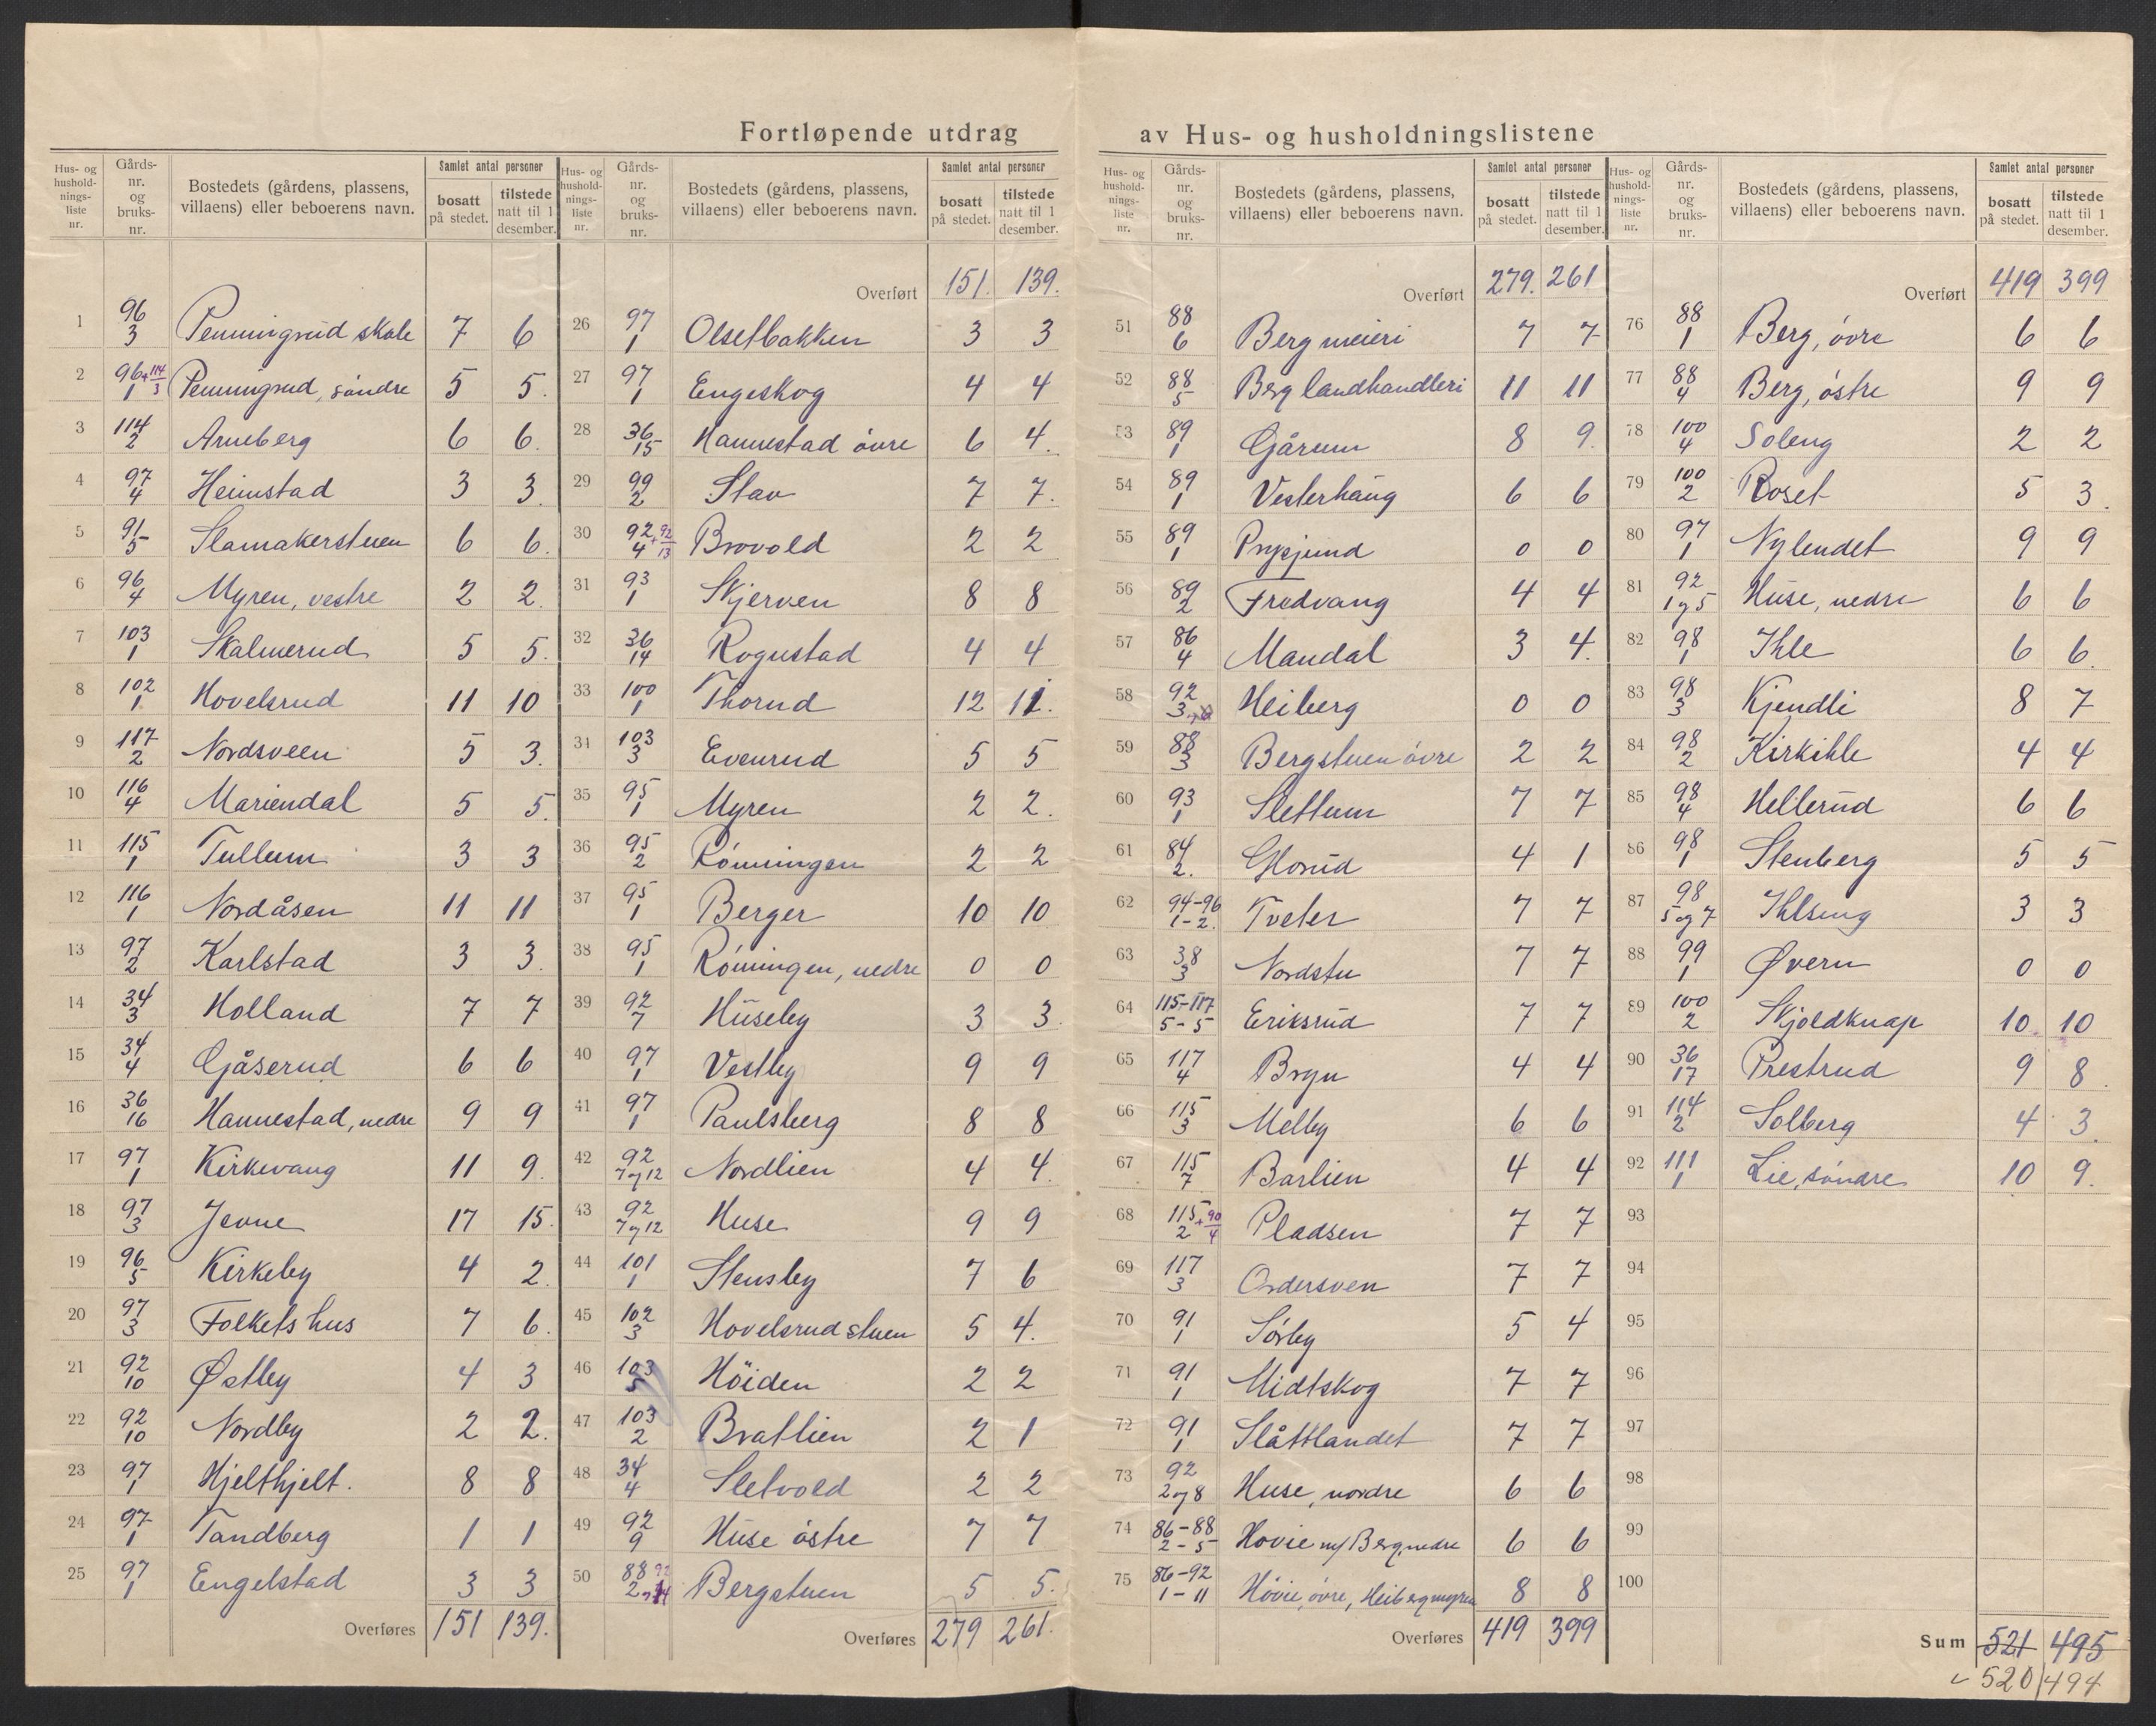 Fortløpende utdrag av Hus- og husholdningslistene
Hus- og hushold- nings- liste nr. | Gårds- nr. og bruks- nr. | Bostedets (gårdens, plassens, villaens) eller beboerens navn. | Samlet antal personer bosatt på stedet. | tilstede natt til 1 desember.
1 96/3 Penningrud skole 7 6
2 96/1 + 114/3 Penningrud, søndre 5 5.
3 114/2 Arneberg 6 6.
4 97/4 Heimstad 3 3.
5 91/5 Slamakerstuen 6 6.
6 96/4 Myren, vestre 2 2.
7 103/1 Skalmerud 5 5.
8 102/1 Hovelsrud 11 10
9 117/2 Nordsveen 5 3.
10 116/4 Mariendal 5 5.
11 115/1 Tullum 3 3
12 116/1 Nordåsen 11 11
13 97/2 Karlstad 3 3.
14 34/3 Holland 7 7
15 34/4 Gåserud 6 6
16 36/16 Hannestad, nedre 9 9
17 97/1 Kirkevang 11 9.
18 97/3 Jevne 17 15.
19 96/5 Kirkeby 4 2.
20 97/3 Folkets hus 7 6.
21 92/10 Østby 4 3
22 92/10 Nordby 2 2.
23 97/1 Hjelthjelt. 8 8
24 97/1 Tandberg 1 1
25 97/1 Engelstad 3 3
Overføres 151 139.
Hus- og hushold- nings- liste nr. | Gårds- nr. og bruks- nr. | Bostedets (gårdens, plassens, villaens) eller beboerens navn. | Samlet antal personer bosatt på stedet. | tilstede natt til 1 desember.
Overført 151. 139.
26 97/1 Olsetbakken 3 3
27 97/1 Engeskog 4 4
28 36/15 Hannestad övre 6 4.
29 99/2 Stav 7 7.
30 92/4 + 92/13 Brovold 2 2
31 93/1 Skjerven 8 8
32 36/14 Rognstad 4 4
33 100/1 Thorud 12 11.
34 103/3 Evenrud 5 5
35 95/1 Myren 2 2.
36 95/2 Rönningen 2 2
37 95/1 Berger 10 10
38 95/1 Rönningen, nedre 0 0
39 92/7 Huseby 3 3.
40 97/1 Vestby 9 9
41 97/1 Paulsberg 8 8
42 92/7 og 12 Nordlien 4 4.
43 92/7 og 12 Huse 9 9
44 101/1 Stensby 7 6
45 102/3 Hovelsrudstuen 5 4.
46 103/5 Höiden 2 2
47 103/2 Bratlien 2 1
48 34/4 Sletvold 2 2
49 92/9 Huse östre 7 7
50 88/2 Bergstuen 5 5.
Overføres 279 261.
Hus- og hushold- nings- liste nr. | Gårds- nr. og bruks- nr. | Bostedets (gårdens, plassens, villaens) eller beboerens navn. | Samlet antal personer bosatt på stedet. | tilstede natt til 1 desember.
Overført 279. 261
51 88/6 Berg meieri 7 7
52 88/5 Berg landhandleri 11 11
53 89/1 Gårum 8 9.
54 89/1 Vesterhaug 6 6
55 89/1 0 0
56 89/2 Fredvang 4 4
57 86/4 Mandal 3 4.
58 92/3 Heiberg 0 0
59 88/3 Bergstuen övre 2 2
60 93/1 Slettum 7 7
61 84/2. Glorud 4 1
62 94-96/1-2. Tveter 7 7
63 38/3 Nordstu 7 7
64 115-117/5-5 Eriksrud 7 7
65 117/4 Bryn 4 4
66 115/3 Melby 6 6
67 115/7 Barlien 4 4
68 115/2 + 90/4 Pladsen 7 7
69 117/3 Ordersven 7 7
70 91/1 Sörby 5 4
71 91/1 Midtskog 7 7
72 91/1 Slåttlandet 7 7
73 92/2 og 8 Huse, nordre 6 6
74 86-88/2-5 Hovie m/ Berg, nedre 6 6
75 86-92/1-11 Hovie, övre, Heibergmyren 8 8
Overføres 419 399
Hus- og hushold- nings- liste nr. | Gårds- nr. og bruks- nr. | Bostedets (gårdens, plassens, villaens) eller beboerens navn. | Samlet antal personer bosatt på stedet. | tilstede natt til 1 desember.
Overført 419 399
76 88/1 Berg, övre 6 6
77 88/4 Berg, östre 9 9
78 100/4 Soleng 2 2
79 100/2 Roset 5 3.
80 97/1 Nylendet 9 9
81 92/1 og 5 Huse, nedre 6 6
82 98/1 Ihle 6 6.
83 98/3 Kjendli 8 7
84 98/2 Kirkihle 4 4
85 98/4 Hellerud 6 6
86 98/1 Stenberg 5 5
87 98/5 og 7 Ihlseng 3 3
88 99/1 Øvern 0 0
89 100/2 Skjoldknap 10 10
90 36/17 Prestrud 9 8.
91 114/2 Solberg 4 3.
92 111/1 Lie, söndre 10 9.
93
94
95
96
97
98
99
100
Sum 521 495
520 494